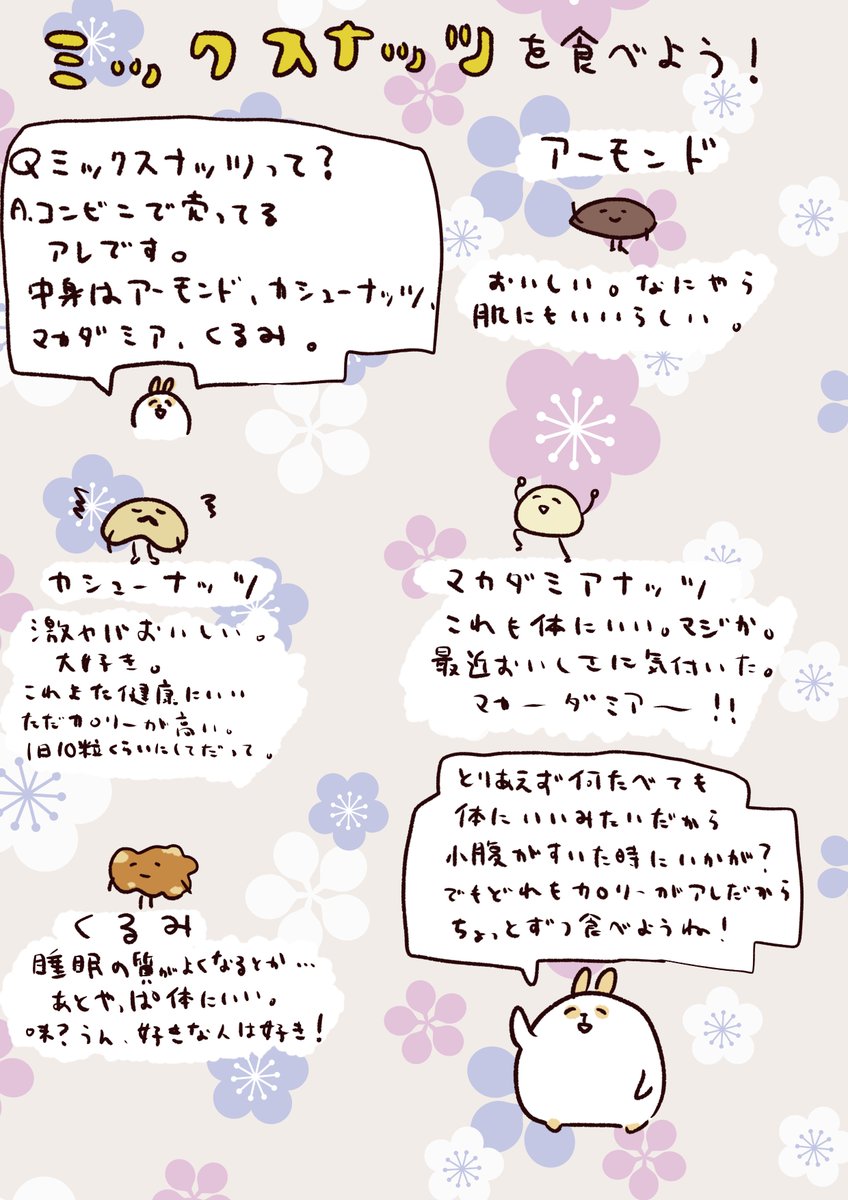 ミックスナッツを食べよう!
Qミックスナッツって?
A.コンビニで売ってる
アレです。
中身はアーモンド、カシューナッツ、
マカダミア、くるみ。
アーモンド
おいしい。なにやら
肌にもいいらしい。
カシューナッツ
激ヤバおいしい。
大好き。
これまた健康にいい
ただカロリーが高い。
1日10粒くらいにしてだって。
マカダミアナッツ
これも体にいい。マジか。
最近おいしさに気付いた。
マカーダミアー!!
くるみ
睡眠の質がよくなるとか…
あとやっぱ体にいい。
味?うん、好きな人は好き!
とりあえず何たべても
体にいいみたいだから
小腹がすいた時にいかが?
でもどれもカロリーがアレだから
ちょっとずつ食べようね!